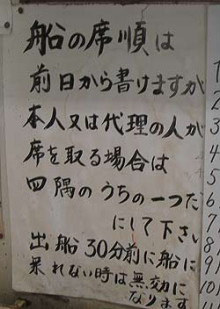 船の席順は
前日から書けますが
本人又は代理の人が
席を取る場合は
四隅のうちの一つだ
にして下さい
出船30分前に船に
来れない時は無効に
なります
1
2
3
4
5
6
7
8
9
10
11